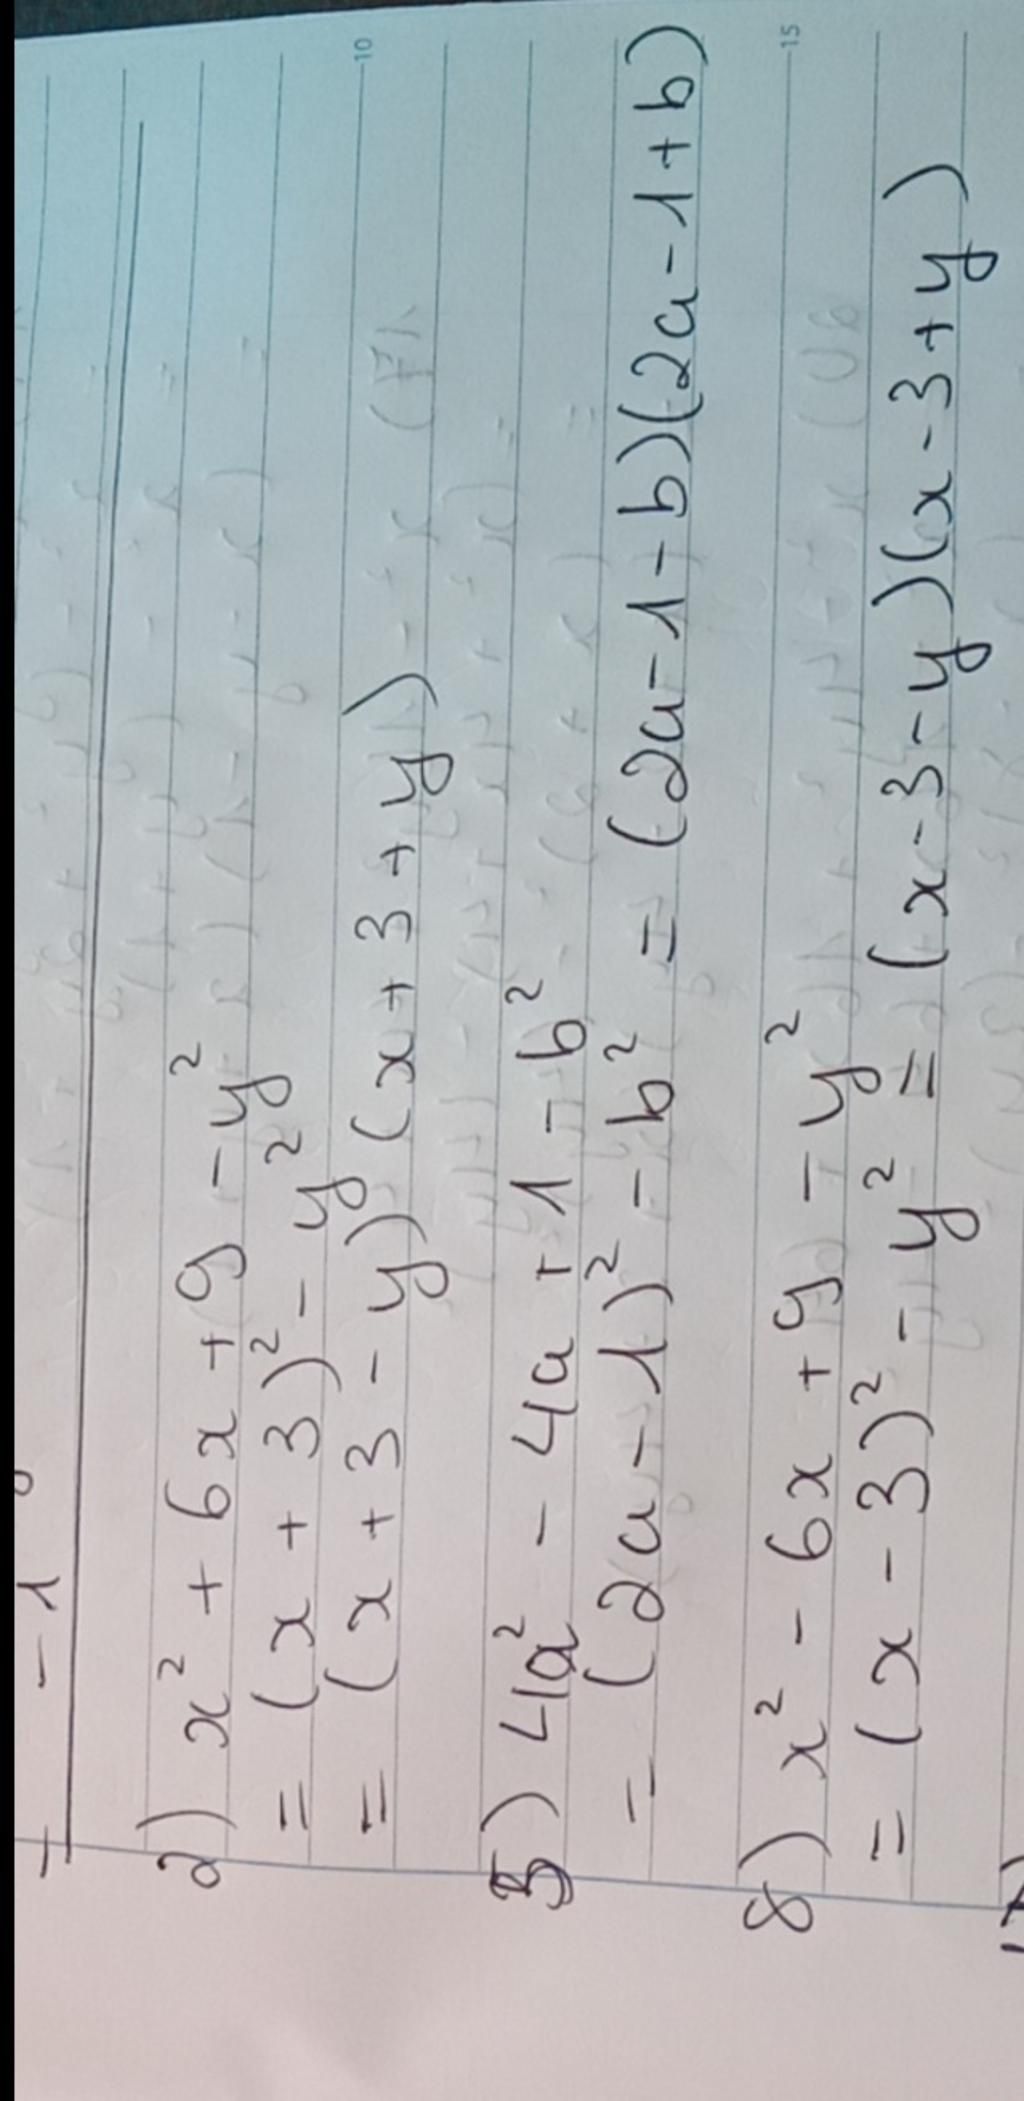 = -1
2) x² + 6x + 9 - y²
= (x + 3)² - y²
= (x + 3 - y)(x + 3 + y)
10
5) 4a² - 4a + 1 - b²
= (2a - 1)² - b² = (2a - 1 - b)(2a - 1 + b)
15
8) x² - 6x + 9 - y²
= (x - 3)² - y² = (x - 3 - y)(x - 3 + y)